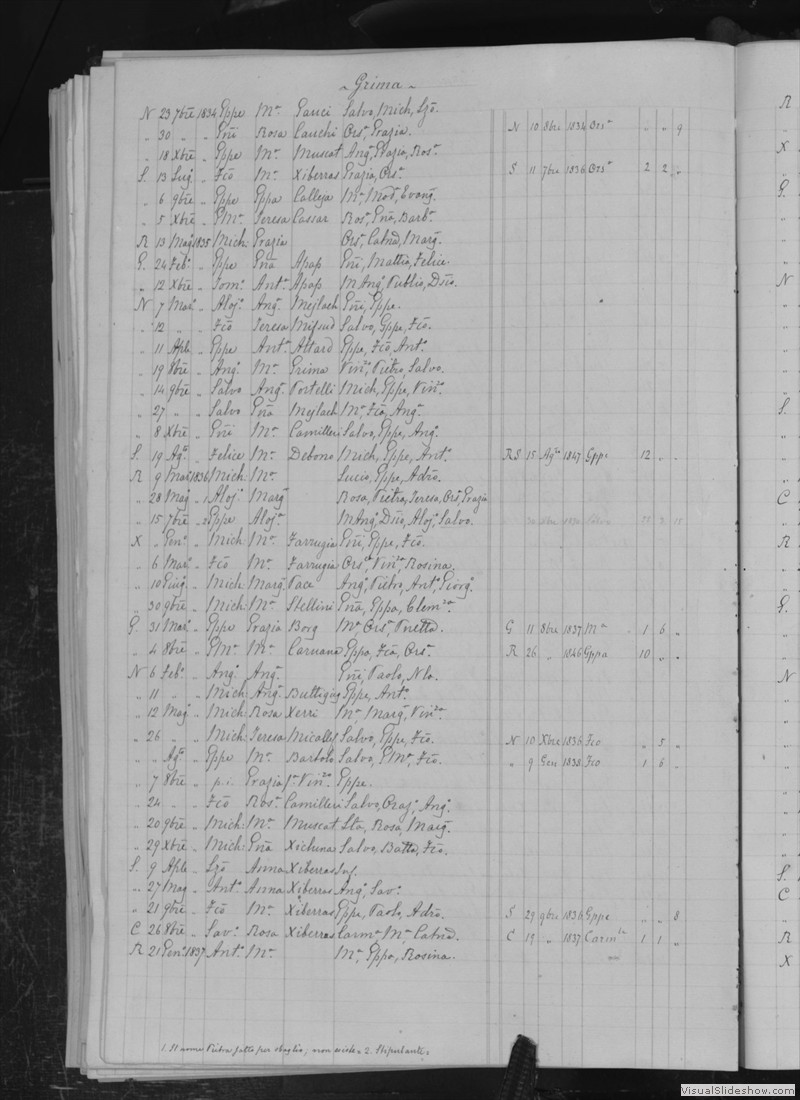 ~ Grima ~
N 23 7bre 1834 Gppe Ma Gauci Salvo, Mich, Lzo.
„ 30 „ „ Gni Rosa Cauchi Orsa, Grazia. N 10 8bre 1834 Orsa „ „ 9
„ 18 Xbre „ Gppe Ma Muscat Anga, Grazia, Rosa.
S. 13 Lugo „ Fco Ma Xiberras Grazia, Orsa. S 11 7bre 1836 Orsa 2 2 „
„ 6 9bre „ Gppe Gppa Calleja Ma Mod, Evang.
„ 5 Xbre „ GMa Teresa Cassar Rosa, Gna, Barba.
R 13 Mag 1835 Mich: Grazia Orsa, Catnd, Marg.
G. 24 Febo „ Gppe Gna Apap Gni, Mattia, Felice.
„ 12 Xbre „ Tomo Anta Apap M Anga, Publio, Dsio.
N 7 Maro „ Alojo Anga Mejlach Gni, Gppe.
„ 12 „ „ Fco Teresa Mifsud Salvo, Gppe, Fco.
„ 11 Aple „ Gppe Anta Attard Gppe, Fco, Anto.
„ 19 8bre „ Ango Ma Grima Vinza, Pietro, Salvo.
„ 14 9bre „ Salvo Anga Portelli Mich, Gppe, Vinzo.
„ 27 „ „ Salvo Gna Mejlach Ma, Fco, Anga.
„ 8 Xbre „ Gni Ma Camilleri Salvo, Gppe, Anga.
S. 19 Ago „ Felice Ma Debono Mich, Gppe, Anto. RS 15 Ago 1847 Gppe 12 „ „
R 9 Maro 1836 Mich: Ma Lucio, Gppe, Adro.
„ 28 Mag „ 1 Alojo Marg Rosa, Pietra, Teresa, Orsa, Grazia
„ 15 7bre „ 2 Gppe Aloja M Anga, Dsio, Alojo, Salvo.
X „ Geno „ Mich Ma Farrugia Gni, Gppe, Fco.
„ 6 Maro „ Fco Ma Farrugia Orsa, Vinza, Rosina.
„ 10 Giugo „ Mich Marg Pace Anga, Pietro, Anta, Giorgo.
„ 30 9bre „ Mich: Ma Stellini Gna, Gppa, Clemza.
G. 31 Maro „ Gppe Grazia Borg Ma, Orsa, Vnetta. G 11 8bre 1837 Ma 1 6 „
„ 4 8bre „ GMa Ma Caruana Gppa, Fca, Orsa. R 26 „ 1846 Gppa 10 „ „
N 6 Febo „ Ango Anga Gni, Paolo, Nla.
„ 11 „ „ Mich Anga Buttigieg Gppe, Anto.
„ 12 Mago „ Mich: Rosa Xerri Ma, Marg, Vinza.
„ 26 „ „ Mich: Teresa Micallef Salvo, Gppe, Fco. N 10 Xbre 1836 Fco „ 5 „
„ „ Ago „ Gppe Ma Bartolo Salvo, GMa, Fco. „ 9 Gen 1838 Fco 1 6 „
„ 7 8bre „ p.i. Grazia fa Vinzo Gppe.
„ 24 „ „ Fco Rosa Camilleri Salvo, Orazo, Ango.
„ 20 9bre „ Mich: Ma Muscat Sta, Rosa, Marg.
„ 29 Xbre „ Mich: Gna Xichuna Salvo, Batta, Fco.
S. 9 Aple „ Lzo Anna Xiberras Inf.
„ 27 Mag „ Anto Anna Xiberras Ango, Savo.
„ 21 9bre „ Fco Ma Xiberras Gppe, Paolo, Adro. S 29 9bre 1836 Gppe „ „ 8
C 26 8bre „ Savo Rosa Xiberras Carma Ma, Catnd. C 19 „ 1837 Carmla 1 1 „
R 21 Geno 1837 Anto Ma Ma, Gppa, Rosina.
1. Il nome Pietra fatto per sbaglio; non esiste = 2. Stipulante =
VisualSlideshow.com